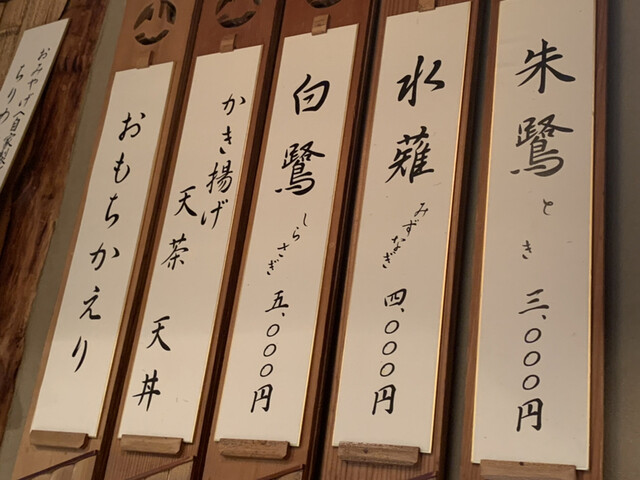 朱鷺 とき 三、〇〇〇円
水薙 みずなぎ 四、〇〇〇円
白鷺 しらさぎ 五、〇〇〇円
かき揚げ
天茶 天丼
おもちかえり
おみやげ(自家製)
ちりめ